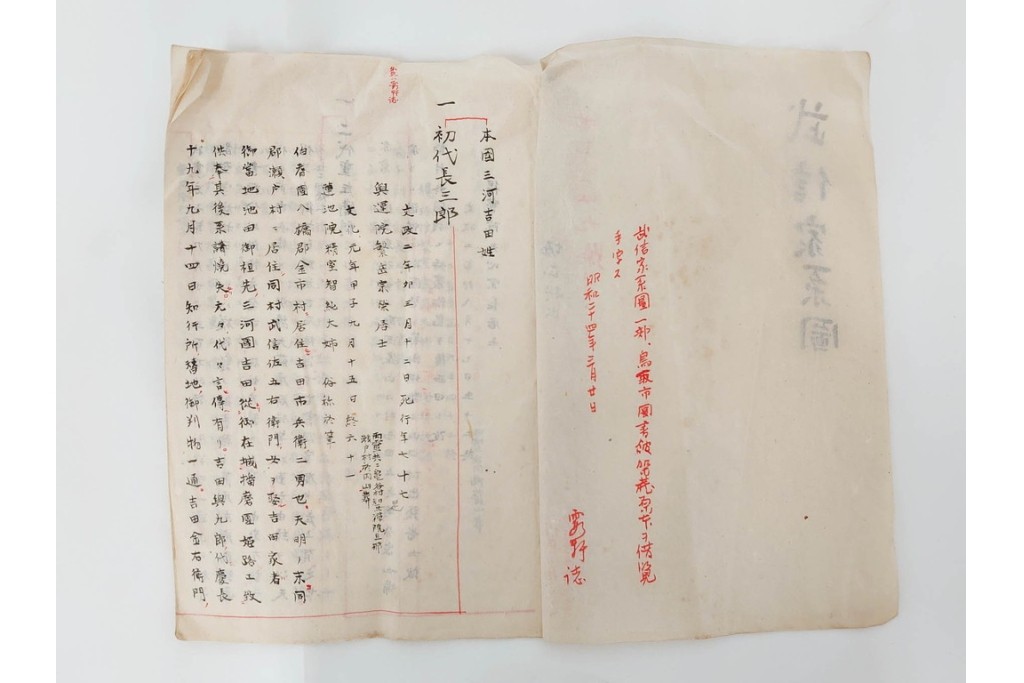 武信家系圖
武信家系圖一部、鳥取市圖書館所蔵原本ヲ借覧
手写ス
昭和二十四年三月廿日
誌
本國三河吉田姓
一 初代長三郎
文政二年卯五月十二日死行年七十七
文久元年甲子九月十五日終六十一
蓮池院精室智純大姉 俗称於
伯耆國八橋郡金市村ニ居住吉田市兵衛二男也、天明ノ末同
郡瀬戸村ニ居住、同村武信佐五右衛門女ヲ娶吉田家者
御當地池田御祖先、三河國吉田ニ御在城播磨國姫路エ致
供奉其後系譜焼失
代々言傳有リ吉田與九郎代慶長
十九年九月十四日知行所
地御判物一通吉田金右衛門